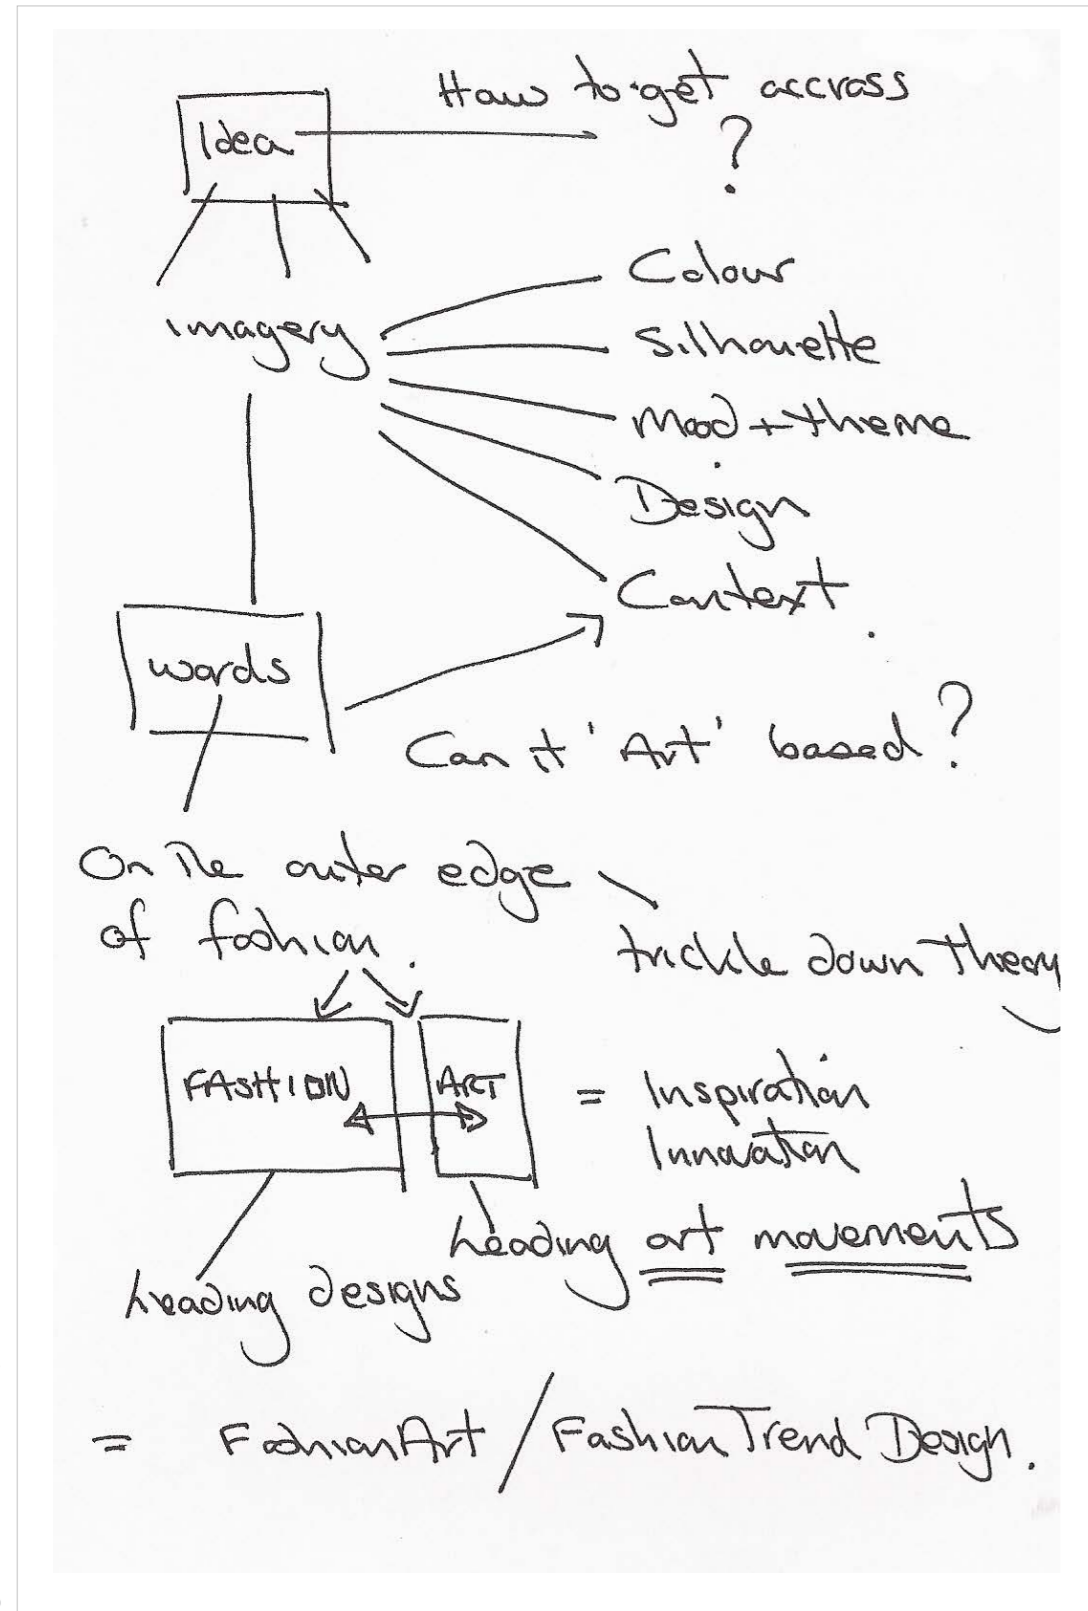 How to get accrass
?
Idea
Colour
imagery
Silhouette
Mood + theme
Design
Context.
words
Can it 'Art' based?
On The outer edge
of fashion.
trickle down theory
FASHION
ART
= Inspiration
Innovation
heading art movements
heading designs
= FashionArt / Fashion Trend Design.